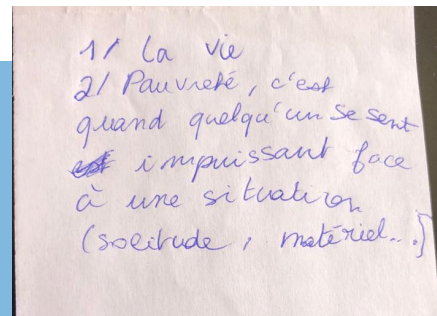 1/ La vie
2/ Pauvreté, c'est
quand quelqu'un se sent
impuissant face
à une situation
(solitude, matériel...)